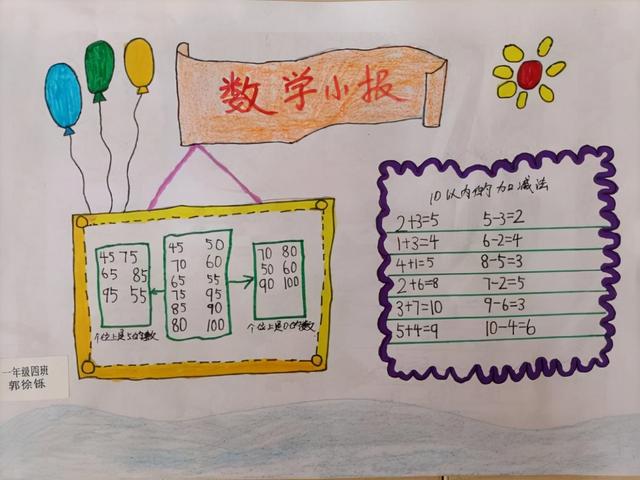 数学小报
45 75
65 85
95 55
个位上是5的数
45 50
70 60
65 55
75 95
85 90
80 100
70 80
50 60
90 100
个位上是0的数
10以内的加减法
2+3=5 5-3=2
1+3=4 6-2=4
4+1=5 8-5=3
2+6=8 7-2=5
3+7=10 9-6=3
5+4=9 10-4=6
一年级四班
郭徐铄